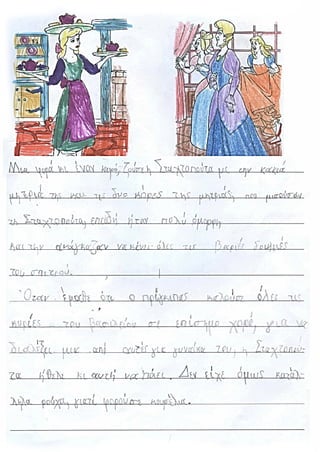 Μια φορά κι έναν καιρό, ζούσε η Σταχτοπούτα με την κακιά
μητριά της και τις δυο κόρες της μητριάς, που μισούσαν
τη Σταχτοπούτα, επειδή ήταν πολύ όμορφη
και την ανάγκαζαν να κάνει όλες τις βαριές δουλειές
του σπιτιού.
Όταν έμαθε ότι ο πρίγκιπας καλούσε όλες τις
κυρίες του βασιλείου σε επίσημο χορό, για να
διαλέξει μια από αυτές για γυναίκα του, η Σταχτοπού-
τα ήθελε κι αυτή να πάει. Δεν είχε όμως κατάλ-
ληλα ρούχα, γιατί φορούσε κουρέλια.